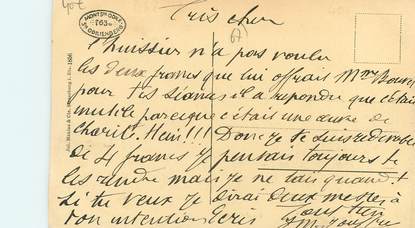 Très cher
L'huissier n'a pas voulu
les deux francs que lui offrait Mme
pour tes séances il a repondu que c'était
inutile parceque c'était une œuvre de
charité. Hein!!! Donc je te suis redevable
de 4 francs je pensais toujours te
les rendre mais je ne sais quand
Si tu veux je dirai deux messes à
ton intention Ecris
MONT STE ODILE
ODILIENBERG
763m
67